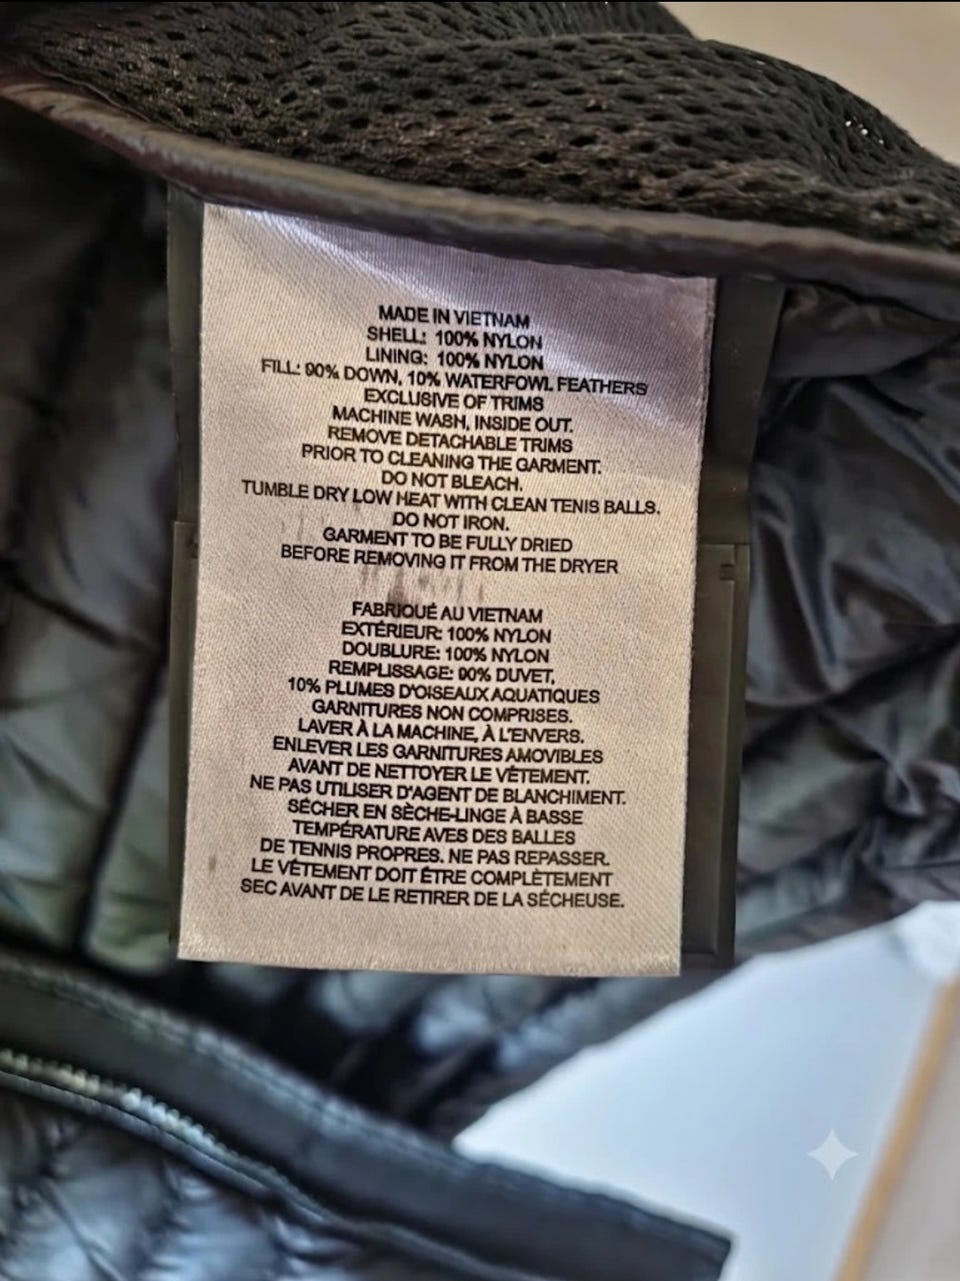 MADE IN VIETNAM
SHELL: 100% NYLON
LINING: 100% NYLON
FILL: 90% DOWN, 10% WATERFOWL FEATHERS
EXCLUSIVE OF TRIMS
MACHINE WASH, INSIDE OUT.
REMOVE DETACHABLE TRIMS
PRIOR TO CLEANING THE GARMENT.
DO NOT BLEACH.
TUMBLE DRY LOW HEAT WITH CLEAN TENIS BALLS.
DO NOT IRON.
GARMENT TO BE FULLY DRIED
BEFORE REMOVING IT FROM THE DRYER
FABRIQUÉ AU VIETNAM
EXTÉRIEUR: 100% NYLON
DOUBLURE: 100% NYLON
REMPLISSAGE: 90% DUVET,
10% PLUMES D'OISEAUX AQUATIQUES
GARNITURES NON COMPRISES.
LAVER À LA MACHINE, À L'ENVERS.
ENLEVER LES GARNITURES AMOVIBLES
AVANT DE NETTOYER LE VÊTEMENT.
NE PAS UTILISER D'AGENT DE BLANCHIMENT.
SÉCHER EN SÈCHE-LINGE À BASSE
TEMPÉRATURE AVES DES BALLES
DE TENNIS PROPRES. NE PAS REPASSER.
LE VÊTEMENT DOIT ÊTRE COMPLÈTEMENT
SEC AVANT DE LE RETIRER DE LA SÉCHEUSE.